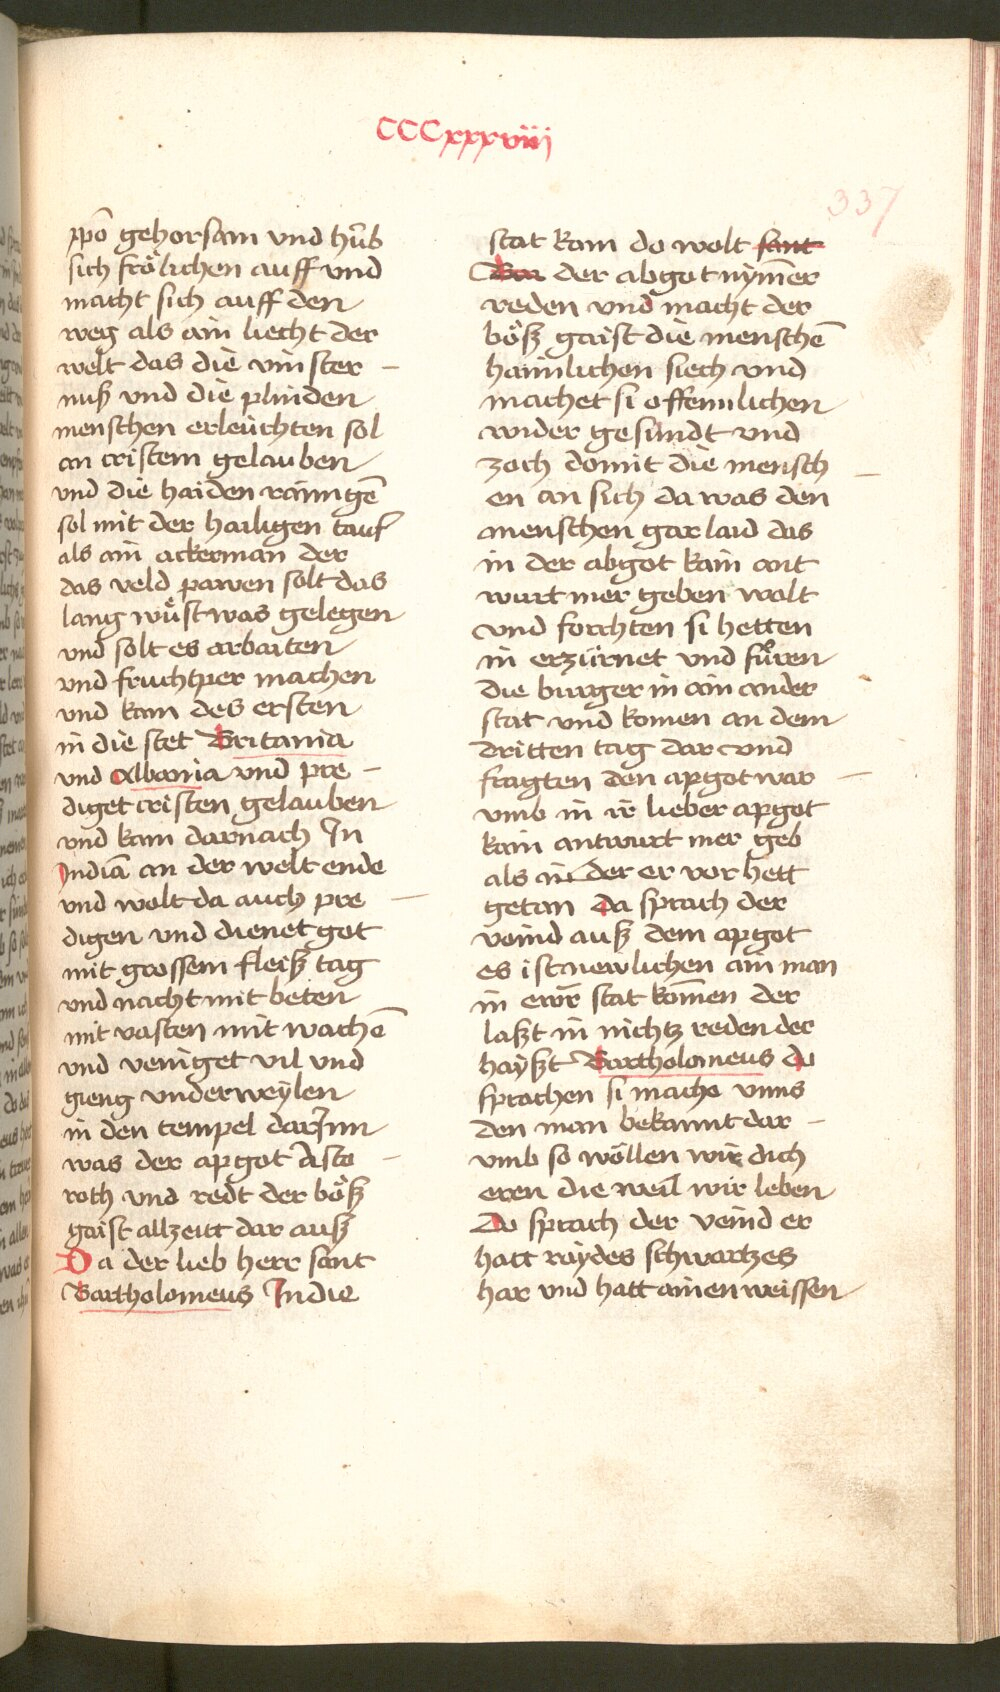 CCCxxxviii
337
xpō gehorsam vnd hůb
sich frölichen auff vnd
macht sich auff den
weg als ain liecht der
welt das die vinster -
nuß vnd die plinden
menschen erleüchten sol
an cristem gelauben
vnd die haiden rainigē
sol mit der hailigen tauf
als ain ackerman der
das veld pawen solt das
lang wu͂st was gelegen
vnd solt es arbaiten
vnd fruchtper machen
vnd kam des ersten
in die stet Britania
vnd Albania vnd pre -
diget cristen gelauben
vnd kam darnach In
Indiā an der welt ende
vnd wolt da auch pre -
digen vnd dienet got
mit grossem fleiß tag
vnd nacht mit beten
mit vasten mit wachē
vnd veniget vil vnd
gieng vnderweÿlen
in den tempel darJnn
was der apgot Asto -
roth vnd redt der böß
gaist allzeitt dar auß
Da der lieb herr sant
Bartholomeus In die
stat kam do wolt sant
Bar der abgot nÿmer
reden vnd macht der
böß gaist die menschē
haimlichen siech vnd
machet si offennlichen
wider gesundt vnd
zoch domit die mensch -
en an sich da was den
menschen gar laid das
in der abgot kain ant
wurt mer geben wolt
vnd forchten si hetten
in erzürnet vnd fůren
die burger in ain ander
stat vnd komen an dem
dritten tag dar vnd
fragten den apgot war -
vmb in ir lieber apgot
kain antwurt mer geb
als in der er vor hett
getan Da sprach der
veind auß dem apgot
es ist newlichen ain man
in ewr stat komen der
laßt in nichtz reden der
haÿßt Bartholomeus do
sprachen si mache vnns
den man bekannt dar -
vmb so wöllen wir dich
eren die weil wir leben
Do sprach der veind er
hatt raÿdes schwartzes
har vnd hatt ainen weissen